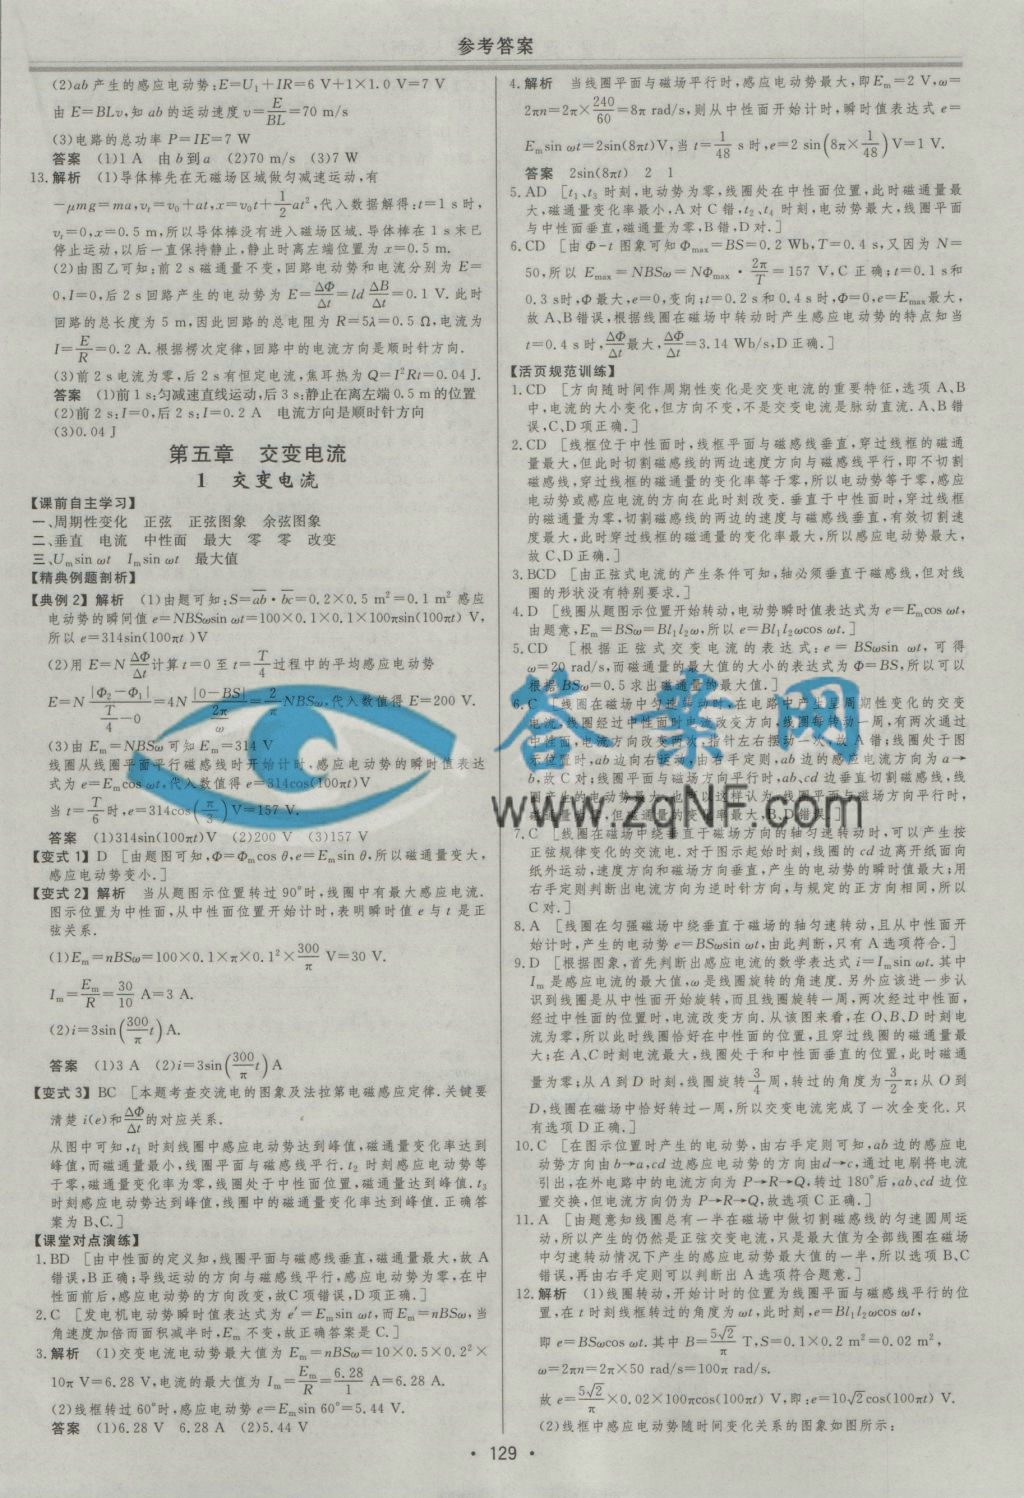 参考答案
(2)ab产生的感应电动势:E=U₁+IR=6 V+1×1.0 V=7 V
由E=BLv,知ab的运动速度v=E/BL=70 m/s
(3)电路的总功率P=IE=7 W
答案 (1)1 A 由b到a (2)70 m/s (3)7 W
13.解析 (1)导体棒先在无磁场区域做匀减速运动,有
-μmg=ma,vₜ=v₀+at,x=v₀t+1/2at²,代入数据解得:t=1 s时,
vₜ=0,x=0.5 m,所以导体棒没有进入磁场区域.导体棒在1 s末已
停止运动,以后一直保持静止,静止时离左端位置为x=0.5 m.
(2)由图乙可知:前2 s磁通量不变,回路电动势和电流分别为E=
0,I=0,后2 s回路产生的电动势为E=ΔΦ/Δt=ld ΔB/Δt=0.1 V.此时
回路的总长度为5 m,因此回路的总电阻为R=5λ=0.5 Ω,电流为
I=E/R=0.2 A.根据楞次定律,回路中的电流方向是顺时针方向.
(3)前2 s电流为零,后2 s有恒定电流,焦耳热为Q=I²Rt=0.04 J.
答案 (1)前1 s:匀减速直线运动,后3 s:静止在离左端0.5 m的位置
(2)前2 s:I=0,后2 s:I=0.2 A 电流方向是顺时针方向
(3)0.04 J
第五章 交变电流
1 交变电流
【课前自主学习】
一、周期性变化 正弦 正弦图象 余弦图象
二、垂直 电流 中性面 最大 零 零 改变
三、Uₘsin ωt Iₘsin ωt 最大值
【精典例题剖析】
【典例2】解析 (1)由题可知:S=ab·bc=0.2×0.5 m²=0.1 m² 感应
电动势的瞬间值e=NBSωsin ωt=100×0.1×0.1×100πsin(100πt) V,
所以e=314sin(100πt)V
(2)用E=N ΔΦ/Δt计算t=0至t=T/4过程中的平均感应电动势
E=N |Φ₂-Φ₁|/(T/4-0)=4N |0-BS|/(2π/ω)=2/π NBSω,代入数值得E=200 V.
(3)由Eₘ=NBSω可知Eₘ=314 V
线圈从线圈平面平行磁感线时开始计时,感应电动势的瞬时值表达
式为e=Eₘcos ωt,代入数值得e=314cos(100πt)V
当t=T/6时,e=314cos(π/3)V=157 V.
答案 (1)314sin(100πt)V (2)200 V (3)157 V
【变式1】D [由题图可知,Φ=Φₘcos θ,e=Eₘsin θ,所以磁通量变大,
感应电动势变小.]
【变式2】解析 当从题图示位置转过90°时,线圈中有最大感应电流.
图示位置为中性面,从中性面位置开始计时,表明瞬时值e与t是正
弦关系.
(1)Eₘ=nBSω=100×0.1×π×0.1²×300/π V=30 V.
Iₘ=Eₘ/R=30/10 A=3 A.
(2)i=3sin(300/π t)A.
答案 (1)3 A (2)i=3sin(300/π t)A
【变式3】BC [本题考查交流电的图象及法拉第电磁感应定律.关键要
清楚i(e)和ΔΦ/Δt的对应关系.
从图中可知,t₁时刻线圈中感应电动势达到峰值,磁通量变化率达到
峰值,而磁通量最小,线圈平面与磁感线平行.t₂时刻感应电动势等
于零,磁通量变化率为零,线圈处于中性面位置,磁通量达到峰值.t₃
时刻感应电动势达到峰值,线圈中的磁通量变化率达到峰值.正确答
案为B、C.]
【课堂对点演练】
1.BD [由中性面的定义知,线圈平面与磁感线垂直,磁通量最大,故A
错误,B正确;导线运动的方向与磁感线平行,感应电动势为零,在中
性面前后,感应电动势的方向改变,故C项错误,D项正确.]
2.C [发电机电动势瞬时值表达式为e′=Eₘsin ωt,而Eₘ=nBSω,当
角速度加倍而面积减半时,Eₘ不变,故正确答案是C.]
3.解析 (1)交变电流电动势最大值为Eₘ=nBSω=10×0.5×0.2²×
10π V=6.28 V,电流的最大值为Iₘ=Eₘ/R=6.28/1 A=6.28 A.
(2)线框转过60°时,感应电动势e=Eₘsin 60°=5.44 V.
答案 (1)6.28 V 6.28 A (2)5.44 V
4.解析 当线圈平面与磁场平行时,感应电动势最大,即Eₘ=2 V,ω=
2πn=2π×240/60=8π rad/s,则从中性面开始计时,瞬时值表达式e=
Eₘsin ωt=2sin(8πt)V,当t=1/48 s时,e=2 sin(8π×1/48)V=1 V.
答案 2sin(8πt) 2 1
5.AD [t₁、t₃时刻,电动势为零,线圈处在中性面位置,此时磁通量最
大,磁通量变化率最小,A对C错,t₂、t₄时刻,电动势最大,线圈平面
与中性面垂直,磁通量为零,B错,D对.]
6.CD [由Φ-t图象可知Φmax=BS=0.2 Wb,T=0.4 s,又因为N=
50,所以Emax=NBSω=NΦmax·2π/T=157 V,C正确;t=0.1 s和
0.3 s时,Φ最大,e=0,变向;t=0.2 s和0.4 s时,Φ=0,e=Emax最大,
故A、B错误,根据线圈在磁场中转动时产生感应电动势的特点知当
t=0.4 s时,ΔΦ/Δt最大,ΔΦ/Δt=3.14 Wb/s,D正确.]
【活页规范训练】
1.CD [方向随时间作周期性变化是交变电流的重要特征,选项A、B
中,电流的大小变化,但方向不变,不是交变电流是脉动直流.A、B错
误,C、D项正确.]
2.CD [线框位于中性面时,线框平面与磁感线垂直,穿过线框的磁通
量最大,但此时切割磁感线的两边速度方向与磁感线平行,即不切割
磁感线,穿过线框的磁通量的变化率等于零,所以电动势等于零,感应
电动势或感应电流的方向在此时刻改变.垂直于中性面时,穿过线框
的磁通量为零,切割磁感线的两边的速度与磁感线垂直,有效切割速
度最大,此时穿过线框的磁通量的变化率最大,所以感应电动势最大,
故C、D正确.]
3.BCD [由正弦式电流的产生条件可知,轴必须垂直于磁感线,但对线
圈的形状没有特别要求.]
4.D [线圈从题图示位置开始转动,电动势瞬时值表达式为e=Eₘcos ωt,
由题意,Eₘ=BSω=Bl₁l₂ω,所以e=Bl₁l₂ωcos ωt.]
5.CD [根据正弦式交变电流的表达式:e=BSωsin ωt,可得
ω=20 rad/s,而磁通量的最大值的大小的表达式为Φ=BS,所以可以
根据BSω=0.5求出磁通量的最大值.]
6.C [线圈在磁场中匀速转动时,在电路中产生呈周期性变化的交变
电流,线圈经过中性面时电流改变方向,线圈每转动一周,有两次通过
中性面,电流方向改变两次,指针左右摆动一次,故A错;线圈处于图
示位置时,ab边向右运动,由右手定则,ab边的感应电流方向为a→
b,故C对;线圈平面与磁场方向平行时,ab、cd边垂直切割磁感线,线
圈产生的电动势最大,也可以这样认为,线圈平面与磁场方向平行时,
磁通量为零,但磁通量的变化率最大,B、D错误.]
7.C [线圈在磁场中绕垂直于磁场方向的轴匀速转动时,可以产生按
正弦规律变化的交流电.对于图示起始时刻,线圈的cd边离开纸面向
纸外运动,速度方向和磁场方向垂直,产生的电动势的瞬时值最大;用
右手定则判断出电流方向为逆时针方向,与规定的正方向相同,所以
C对.]
8.A [线圈在匀强磁场中绕垂直于磁场的轴匀速转动,且从中性面开
始计时,产生的电动势e=BSωsin ωt,由此判断,只有A选项符合.]
9.D [根据图象,首先判断出感应电流的数学表达式i=Iₘsin ωt.其中
Iₘ是感应电流的最大值,ω是线圈旋转的角速度.另外应该进一步认
识到线圈是从中性面开始旋转,而且线圈旋转一周,两次经过中性面,
经过中性面的位置时,电流改变方向.从该图来看,在O、B、D时刻电
流为零,所以此时线圈恰好在中性面的位置,且穿过线圈的磁通量最
大;在A、C时刻电流最大,线圈处于和中性面垂直的位置,此时磁通
量为零;从A到D时刻,线圈旋转3/4周,转过的角度为3/2π;从O到
D,线圈在磁场中恰好转过一周,所以交变电流完成了一次全变化.只
有选项D正确.]
10.C [在图示位置时产生的电动势,由右手定则可知,ab边的感应电
动势方向由b→a,cd边感应电动势的方向由d→c,通过电刷将电流
引出,在外电路中的电流方向为P→R→Q,转过180°后,ab、cd边位
置交换,但电流方向仍为P→R→Q,故选项C正确.]
11.A [由题意知线圈总有一半在磁场中做切割磁感线的匀速圆周运
动,所以产生的仍然是正弦交变电流,只是最大值为全部线圈在磁场
中匀速转动情况下产生的感应电动势最大值的一半,所以选项B、C
错误,再由右手定则可以判断出A选项符合题意.]
12.解析 (1)线圈转动,开始计时的位置为线圈平面与磁感线平行的位
置,在t时刻线框转过的角度为ωt,此时刻,e=Bl₁l₂ωcos ωt,
即e=BSωcos ωt.其中B=5√2/π T,S=0.1×0.2 m²=0.02 m²,
ω=2πn=2π×50 rad/s=100π rad/s.
故e=5√2/π×0.02×100πcos(100πt)V,即:e=10√2cos(100πt)V.
(2)线框中感应电动势随时间变化关系的图象如图所示:
答案网
www.zqNF.com
• 129 •